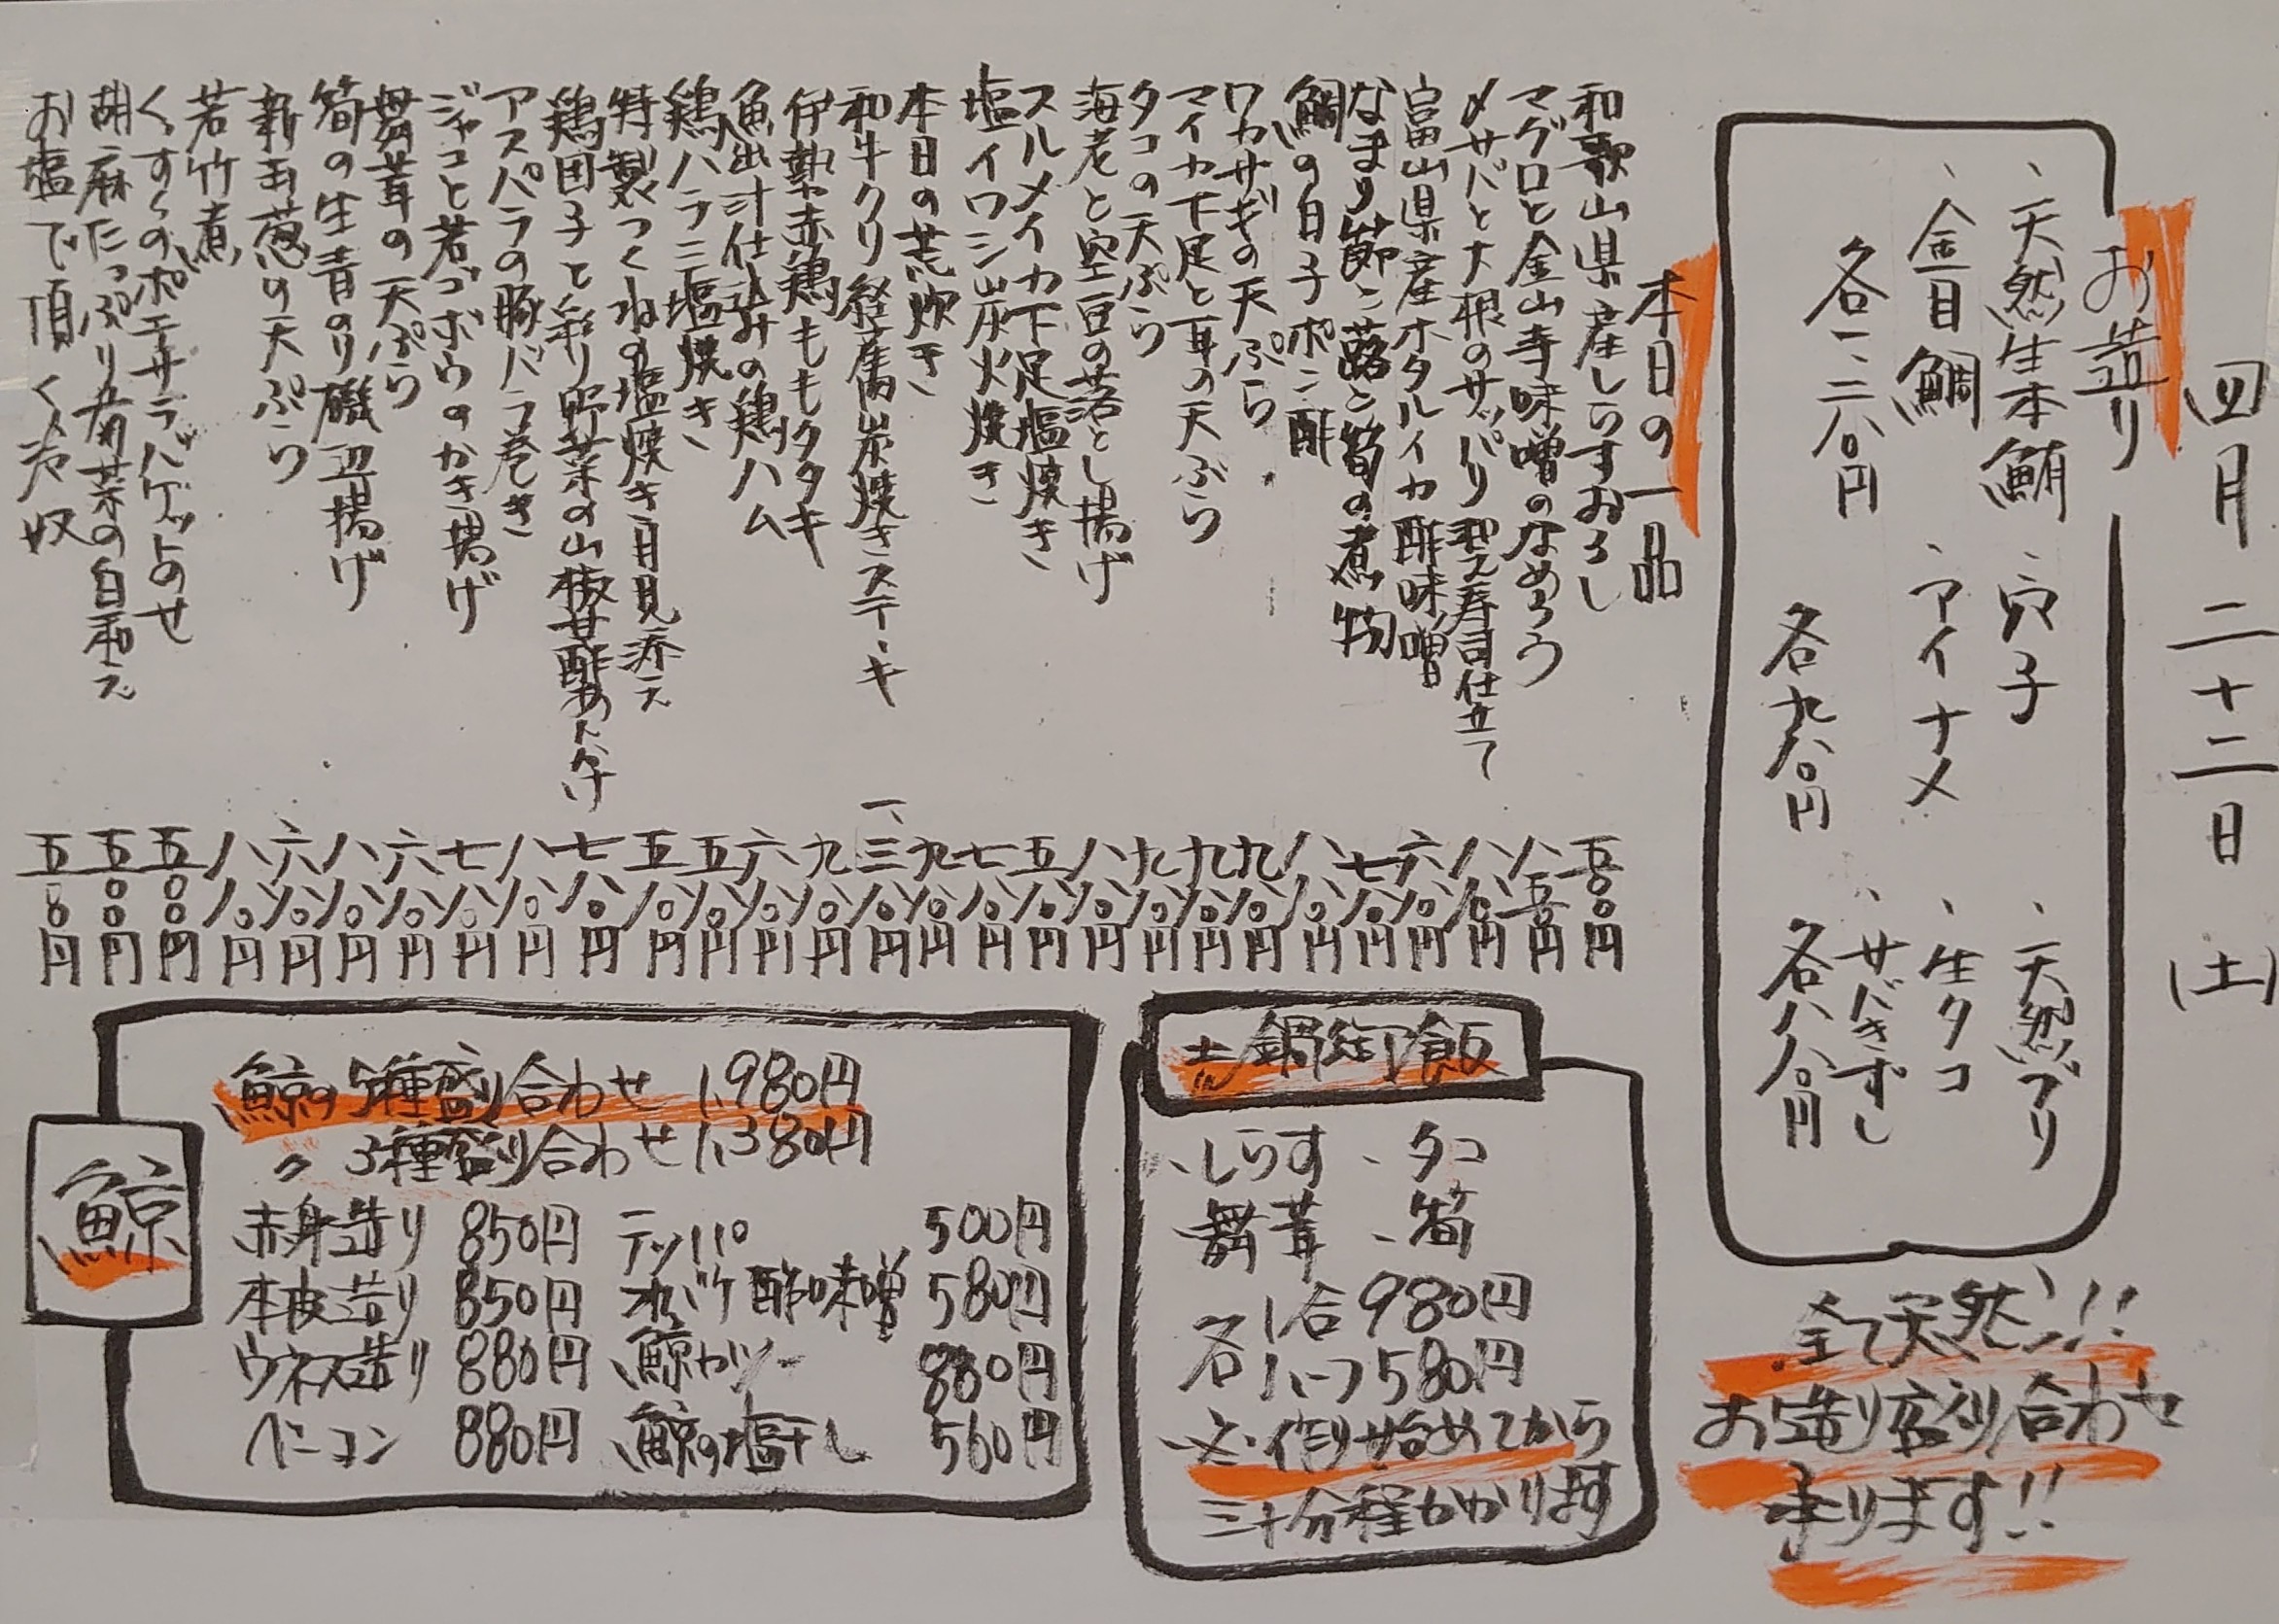 四月二十二日(土)
お造り
、天然生本鮪
、金目鯛
各一、二八〇円
、穴子
、アイナメ
各九八〇円
、天然ブリ
、生タコ
、サバきずし
各八八〇円
全て天然!!
お造り盛り合わせ
承ります!!
本日の一品
和歌山県産しらすおろし 五〇〇円
マグロと金山寺味噌のなめろう 八五〇円
〆サバと大根のサッパリ和え寿司仕立て 八八〇円
富山県産ホタルイカ酢味噌 六八〇円
なまり節と蕗と筍の煮物 七八〇円
鯛の白子ポン酢 八八〇円
ワカサギの天ぷら 九八〇円
マイカ下足と耳の天ぷら 九八〇円
タコの天ぷら 九八〇円
海老と空豆の落とし揚げ 八八〇円
スルメイカ下足塩焼き 五八〇円
塩イワシ炭火焼き 七八〇円
本日の荒炊き 九八〇円
和牛クリ 炭焼きステーキ 一、三八〇円
伊勢赤鶏ももタタキ 九八〇円
魚出汁仕込みの鶏ハム 六八〇円
鶏ハラミ塩焼き 五八〇円
特製つくねの塩焼き月見添え 五八〇円
鶏団子と彩り野菜の山椒甘酢あんかけ 七八〇円
アスパラの豚バラ巻き 八八〇円
ジャコと若ゴボウのかき揚げ 七八〇円
舞茸の天ぷら 六八〇円
筍の生青のり磯辺揚げ 八八〇円
新玉葱の天ぷら 六八〇円
若竹煮 八八〇円
くずくのポテサラバゲットのせ 五〇〇円
胡麻たっぷり青菜の白和え 五〇〇円
お塩で頂く冷奴 五〇〇円
土鍋御飯
、しらす 、タコ
、舞茸 、筍
各1合 980円
各ハーフ 580円
※作り始めてから
三十分程かかります
鯨
鯨の5種盛り合わせ 1,980円
〃 3種盛り合わせ 1,380円
赤身造り 850円 テッパ 500円
本皮造り 850円 オバケ酢味噌 580円
ウネス造り 880円 鯨カツ 880円
ベーコン 880円 鯨の塩干し 560円